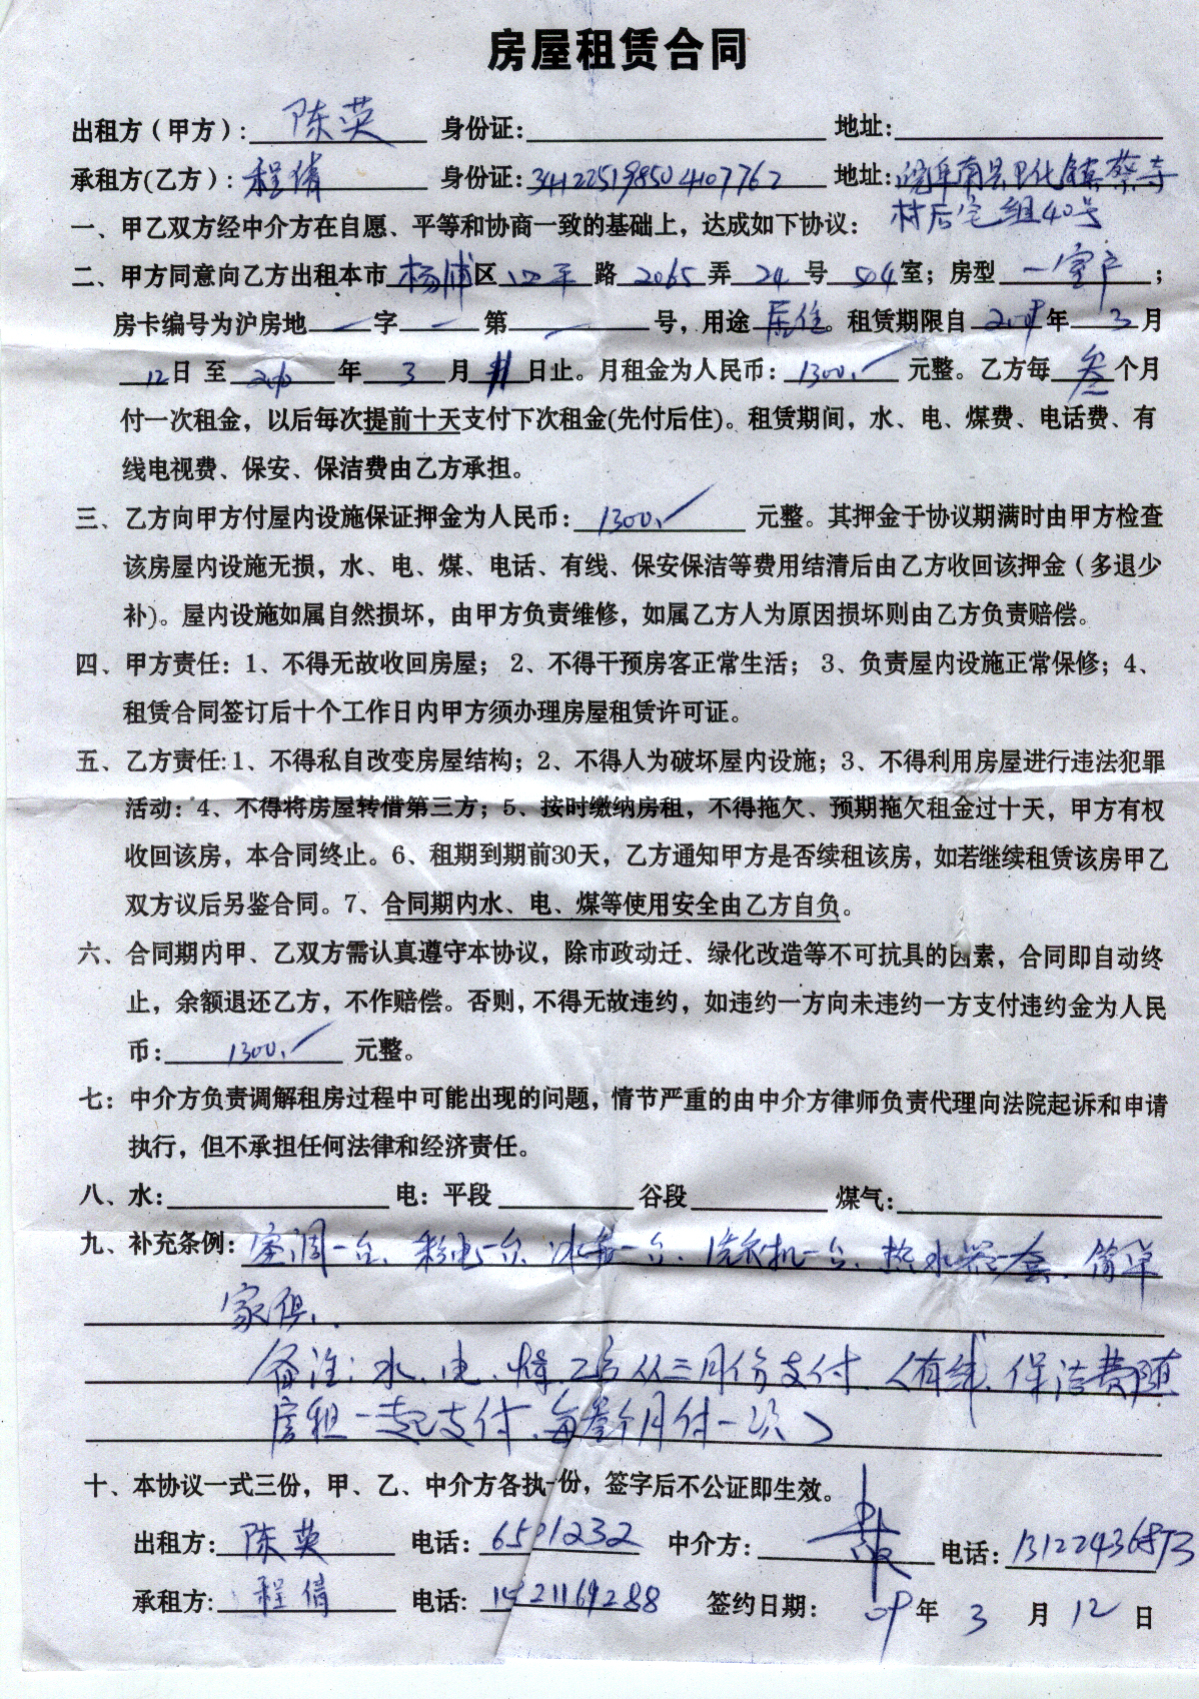 房屋租赁合同
出租方（甲方）: 陈英 身份证: 地址:
承租方(乙方): 程倩 身份证: 地址: 阜南县 镇蔡寺
一、甲乙双方经中介方在自愿、平等和协商一致的基础上，达成如下协议： 村后宅组40号
二、甲方同意向乙方出租本市杨浦区 路 2065 弄 24 号 504 室；房型 一室 ；
房卡编号为沪房地 — 字 — 第 — 号，用途 居住。租赁期限自 年 3 月
12 日 至 年 3 月 11 日止。月租金为人民币：1300. 元整。乙方每 叁 个月
付一次租金，以后每次提前十天支付下次租金(先付后住)。租赁期间，水、电、煤费、电话费、有
线电视费、保安、保洁费由乙方承担。
三、乙方向甲方付屋内设施保证押金为人民币：1300. 元整。其押金于协议期满时由甲方检查
该房屋内设施无损，水、电、煤、电话、有线、保安保洁等费用结清后由乙方收回该押金（多退少
补)。屋内设施如属自然损坏，由甲方负责维修，如属乙方人为原因损坏则由乙方负责赔偿。
四、甲方责任：1、不得无故收回房屋； 2、不得干预房客正常生活； 3、负责屋内设施正常保修；4、
租赁合同签订后十个工作日内甲方须办理房屋租赁许可证。
五、乙方责任:1、不得私自改变房屋结构；2、不得人为破坏屋内设施；3、不得利用房屋进行违法犯罪
活动：4、不得将房屋转借第三方；5、按时缴纳房租，不得拖欠、预期拖欠租金过十天，甲方有权
收回该房，本合同终止。6、租期到期前30天，乙方通知甲方是否续租该房，如若继续租赁该房甲乙
双方议后另鉴合同。7、合同期内水、电、煤等使用安全由乙方自负。
六、合同期内甲、乙双方需认真遵守本协议，除市政动迁、绿化改造等不可抗具的因素，合同即自动终
止，余额退还乙方，不作赔偿。否则，不得无故违约，如违约一方向未违约一方支付违约金为人民
币：1300. 元整。
七：中介方负责调解租房过程中可能出现的问题，情节严重的由中介方律师负责代理向法院起诉和申请
执行，但不承担任何法律和经济责任。
八、水: 电：平段 谷段 煤气:
九、补充条例: 空调一台、彩电一台、冰箱一台、洗衣机一台、热水器一套、简单
家俱.
备注：水、电、煤、乙方从三月份支付、（有线、保洁费随
房租一起支付、每叁个月付一次）
十、本协议一式三份，甲、乙、中介方各执一份，签字后不公证即生效。
出租方: 陈英 电话: 中介方: 电话:
承租方: 程倩 电话: 签约日期： 09 年 3 月 12 日